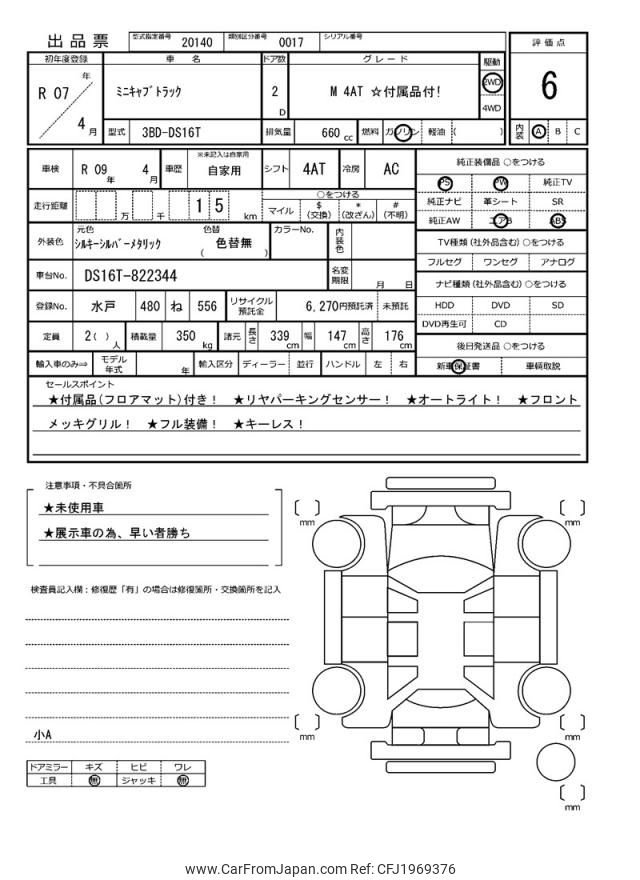 出品票 型式指定番号 20140 類別区分番号 0017 シリアル番号
初年度登録 車 名 ドア数 グレード 駆動 評価点
R 07 年 4 月 ミニキャブトラック 2 D M 4AT ☆付属品付! 2WD 4WD 6
型式 3BD-DS16T 排気量 660 cc 燃料 ガソリン 軽油 ( ) 内装 A B C
車検 R 09 年 4 月 車歴 ※未記入は自家用 自家用 シフト 4AT 冷房 AC 純正装備品 ○をつける
PS PW 純正TV
走行距離 万 千 1 5 km ○をつける
マイル $ (交換) * (改ざん) # (不明)
純正ナビ 革シート SR
純正AW エアB ABS
外装色 元色 シルキーシルバーメタリック 色替 ( 色替無 ) カラーNo. 内装色
TV種類 (社外品含む) ○をつける
フルセグ ワンセグ アナログ
車台No. DS16T-822344 名変期限 月 日
ナビ種類 (社外品含む) ○をつける
登録No. 水戸 480 ね 556 リサイクル預託金 6,270円預託済 未預託
HDD DVD SD
DVD再生可 CD
定員 2( ) 人 積載量 350 kg 諸元 長さ 339 cm 幅 147 cm 高さ 176 cm
後日発送品 ○をつける
輸入車のみ⇒ モデル年式 年 輸入区分 ディーラー 並行 ハンドル 左 右
新車保証書 車輌取説
セールスポイント
★付属品(フロアマット)付き! ★リヤパーキングセンサー! ★オートライト! ★フロント
メッキグリル! ★フル装備! ★キーレス!
注意事項・不具合箇所
★未使用車
★展示車の為、早い者勝ち
検査員記入欄：修復歴「有」の場合は修復箇所・交換箇所を記入
小A
ドアミラー キズ ヒビ ワレ
工具 無 ジャッキ 無
mm
mm
mm
mm
mm
www.CarFromJapan.com Ref: CFJ1969376